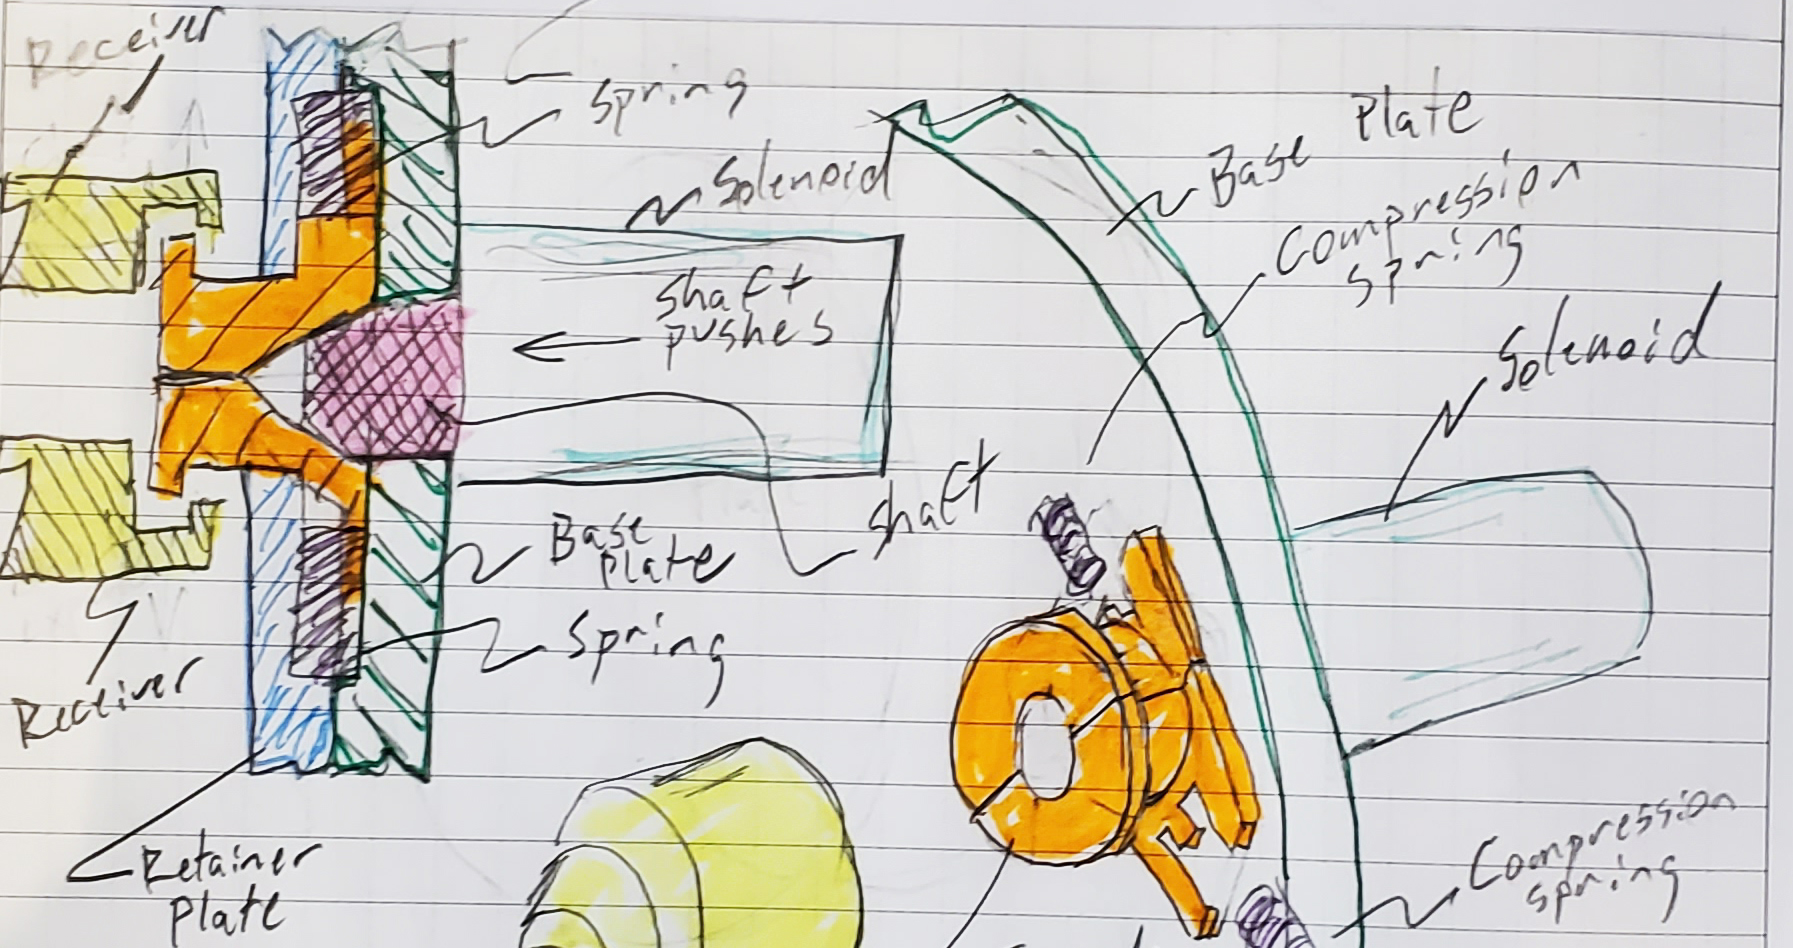 Receiver
Spring
Solenoid
Base Plate
Compression
spring
Shaft
pushes
Solenoid
shaft
Base
plate
Spring
Receiver
Compression
spring
Retainer
plate